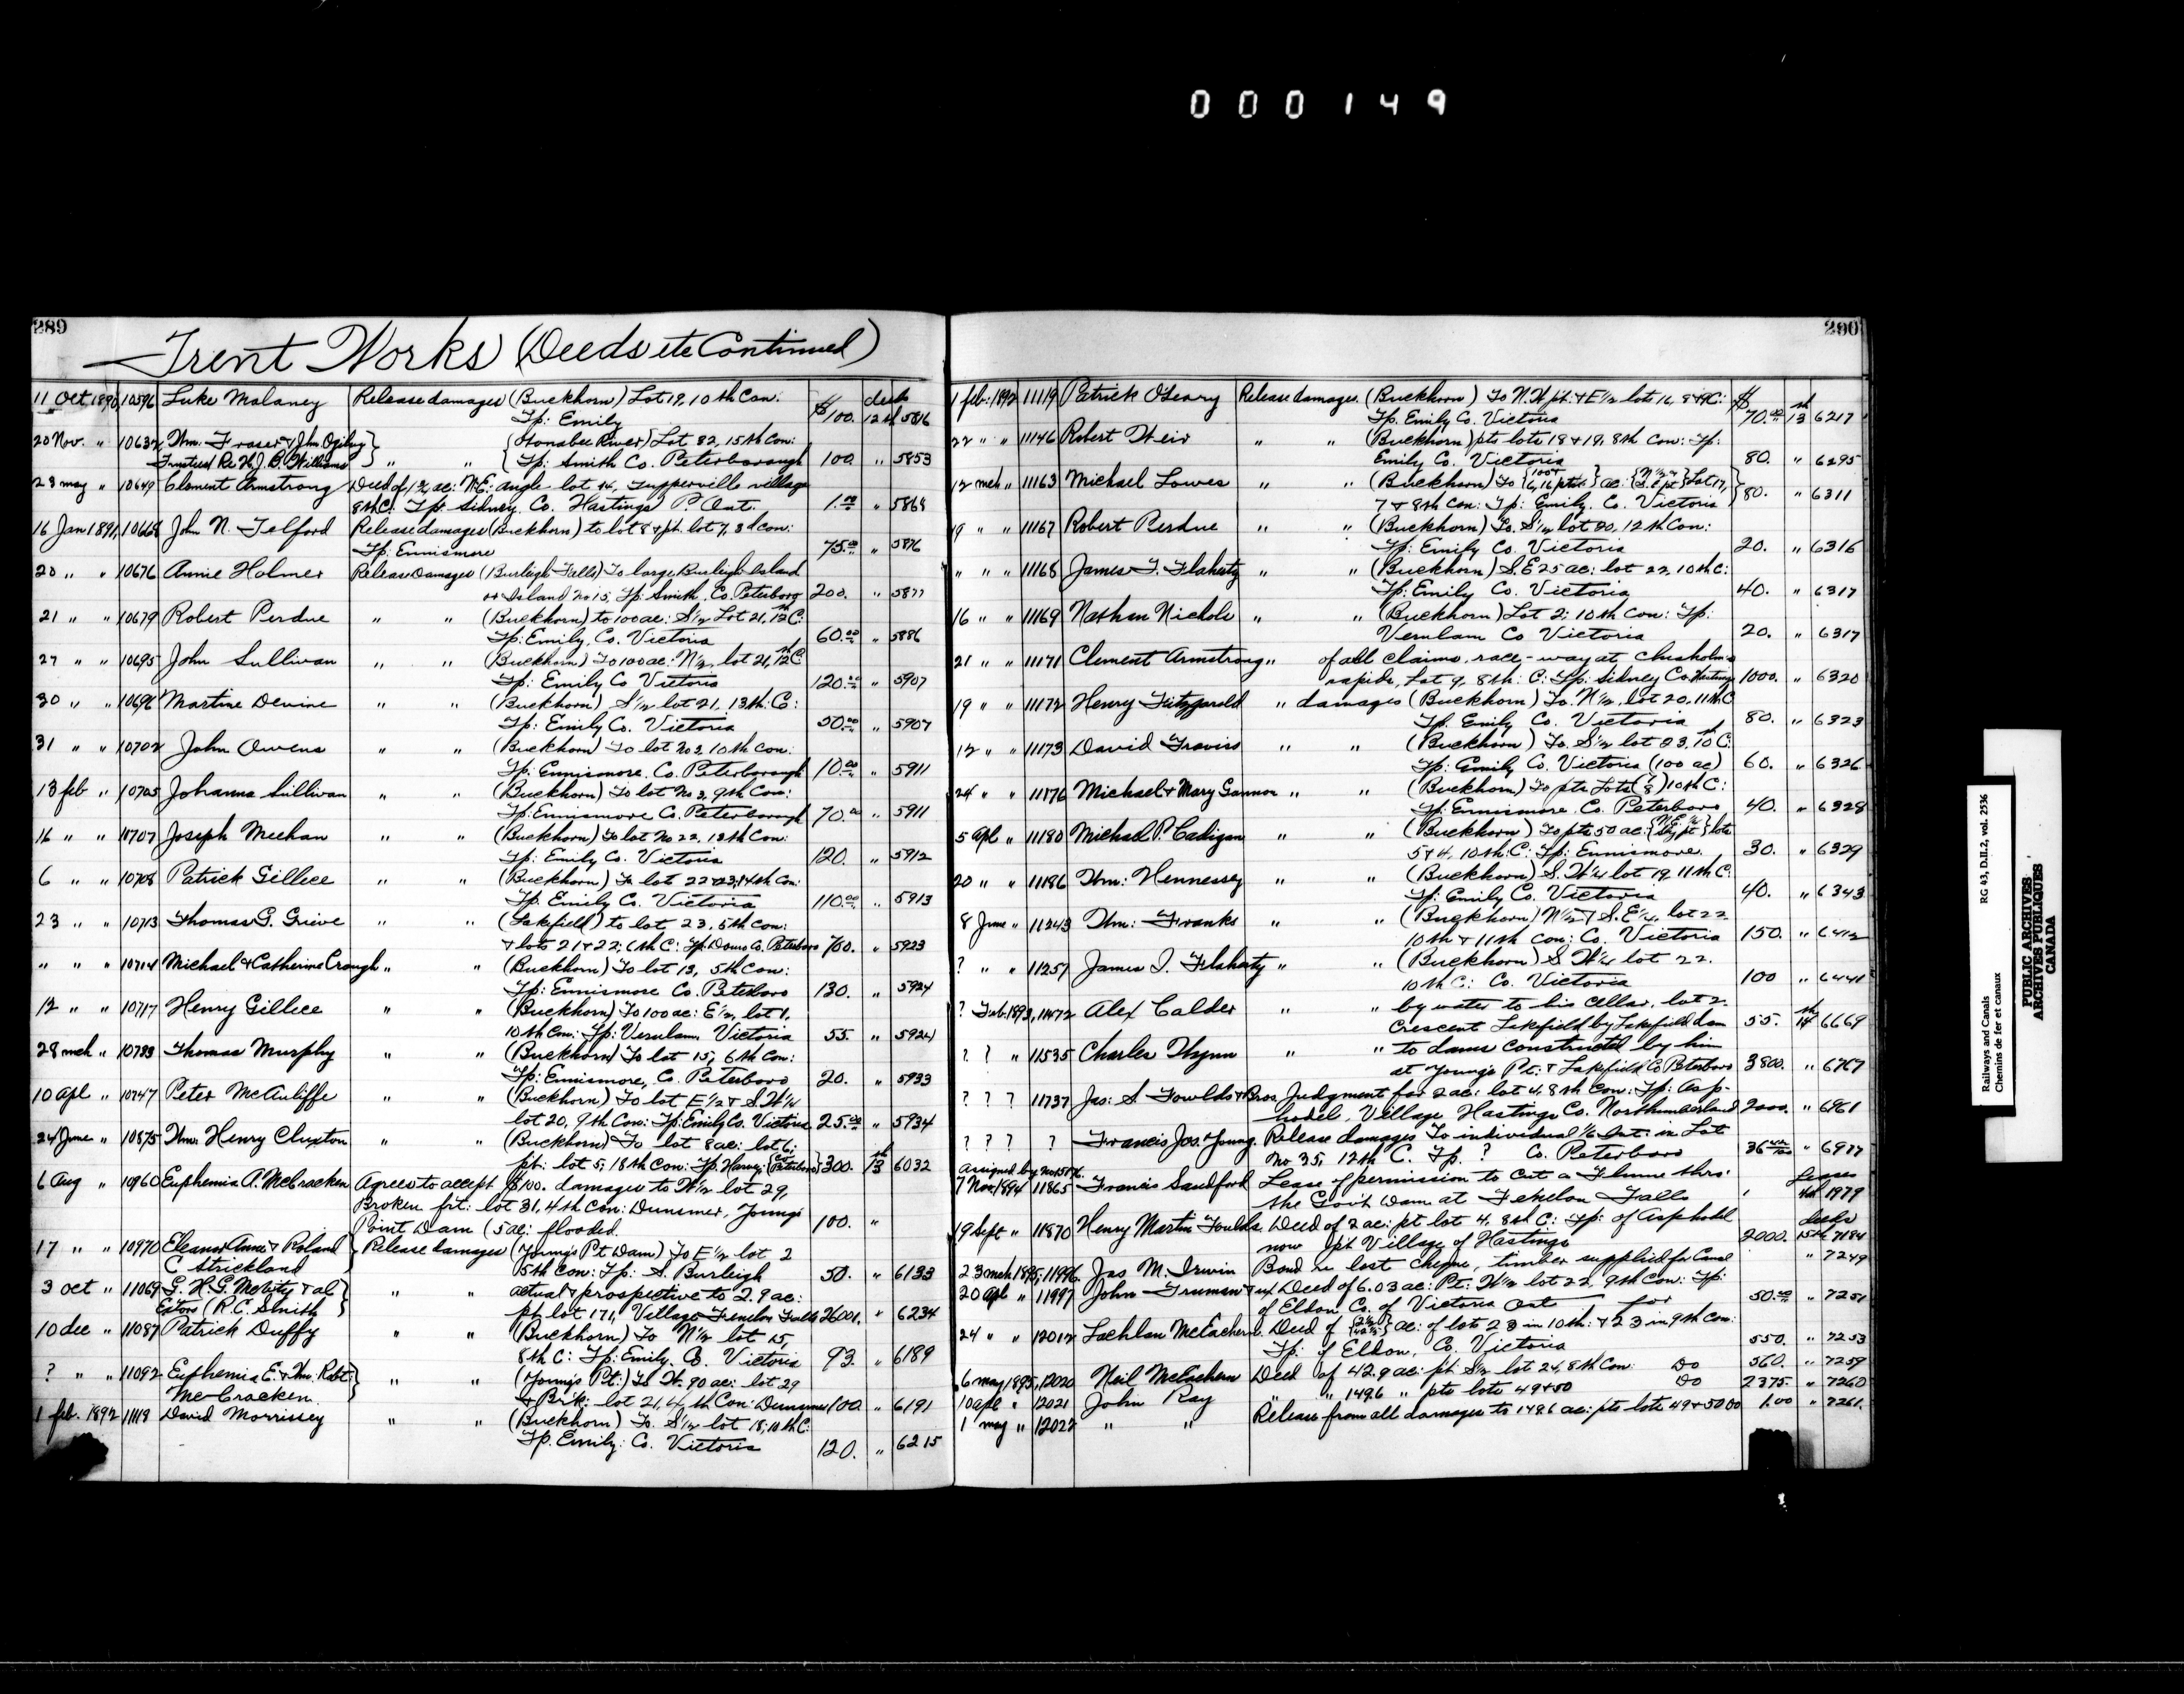 000149
289
Trent Works (Deeds etc Continued)
11 Oct 1890 10596 Luke Malaney Release damages (Buckhorn) Lot 19, 10th Con: $ deeds
Tp: Emily $100. 12th 5816
20 Nov. " 10632 Wm. Fraser & Jhn. Ogilvy } {Otonabee River} Lot 32, 15th Con:
Trustees Re H. J. B. Williams } " " { Tp: Smith Co. Peterborough 100. " 5853
23 may " 10649 Clement Armstrong Deed of ac: N.E. angle lot 14, Tupperville village
8th C: Tp: Sidney. Co. Hastings P. Ont. 1.00 " 5868
16 Jan 1891, 10668 John N. Telford Release damages (Buckhorn) to lot 8 & pt. lot 7, 3d Con:
Tp: Ennismore 75.00 " 5876
20 " " 10676 Annie Holmer Release Damages (Burleigh Falls) To large Burleigh Island
or Island No 15, Tp: Smith, Co. Peterboro 200. " 5877
21 " " 10679 Robert Perdue " " (Buckhorn) to 100 ac: S½ Lot 21, 12th C:
Tp: Emily, Co. Victoria 60.00 " 5886
27 " " 10695 John Sullivan " " (Buckhorn) To 100 ac: N½, lot 21, 12th C
Tp: Emily Co Victoria 120.00 " 5907
30 " " 10696 Martine Devine " " (Buckhorn) S½ lot 21, 13th: C:
Tp: Emily Co. Victoria 50.00 " 5907
31 " " 10702 John Owens " " (Buckhorn) To lot No 2, 10th Con:
Tp: Ennismore, Co. Peterborough 10.00 " 5911
13 feb " 10705 Johanna Sullivan " " (Buckhorn) To lot No 3, 9th Con:
Tp: Ennismore Co. Peterborough 70.00 " 5911
16 " " 10707 Joseph Meehan " " (Buckhorn) To lot No 22, 13th Con:
Tp: Emily Co. Victoria 120. " 5912
6 " " 10708 Patrick Gillice " " (Buckhorn) To lot 22 & 23, 14th Con:
Tp. Emily Co. Victoria 110.00 " 5913
23 " " 10713 Thomas G. Grieve " " (Lakefield) to lot 23, 5th Con:
& lots 21 & 22: 6th C: Tp: Douro Co. Peterboro 700. " 5923
" " " 10714 Michael & Catherine Crough " " (Buckhorn) To lot 13, 5th Con:
Tp: Ennismore Co. Peterboro 130. " 5924
12 " " 10717 Henry Gillice " " (Buckhorn) To 100 ac: E½, lot 1,
10th Con: Tp: Verulam, Victoria 55. " 5924
28 mch " 10733 Thomas Murphy " " (Buckhorn) To lot 15, 6th Con:
Tp: Ennismore, Co. Peterboro 20. " 5933
10 apl " 10747 Peter McAuliffe " " (Buckhorn) To lot E½ & S.W¼
lot 20, 9th Con: Tp: Emily Co. Victoria 25.00 " 5934
24 June " 10875 Wm: Henry Cluxton " " (Buckhorn) To lot 8 ac: lot 6:
pt: lot 5, 18th Con: Tp. Harvey: {Co. Peterboro} 300. 13th 6032
6 Aug " 10960 Euphemia A. McCracken Agrees to accept $100. damages to W½ lot 29,
Broken frt: lot 31, 4th Con: Dunsmer, Young's
Point Dam (5 ac: flooded. 100. "
17 " " 10970 Eleanor Anne & Roland } Release damages (Young's Pt Dam) To E½ lot 2
C Strickland 15th Con: Tp: S. Burleigh 50. " 6133
3 oct " 11069 G. H. G. McVity & al } " " actual & prospective to 2.9 ac:
Extors (R.C. Smith } pt lot 171, Village Fenelon Falls 26001. " 6234
10 dec " 11087 Patrick Duffy " " (Buckhorn) To N½ lot 15,
8th C: Tp: Emily. Co. Victoria 93. " 6189
? " " 11092 Euphemia E. & Wm. Robt: } " " (Young's Pt:) To W. 90 ac: lot 29
McCracken & Brk: lot 21, 4th Con: Dunsmer 100. " 6191
1 feb. 1892 11118 David Morrissey " " (Buckhorn) To. S½ lot 18, 10th C:
Tp. Emily: Co. Victoria 120. " 6215
290
1 feb: 1892 11119 Patrick O'Leary Release damages. (Buckhorn) To N.W pt: & E½ lot 16, 8 & 9 C: $
Tp. Emily Co. Victoria 70.00 13th 6217
22 " " 11146 Robert Weir " " (Buckhorn) pts lots 18 & 19, 8th Con: Tp:
Emily Co. Victoria 80. " 6295
12 mch " 11163 Michael Lowes " " (Buckhorn) To ac: Lot 17,
7 & 8th Con: Tp: Emily. Co. Victoria 80. " 6311
19 " " 11167 Robert Perdue " " (Buckhorn) To. S½ lot 20, 12th Con:
Tp: Emily Co. Victoria 20. " 6316
" " " 11168 James T. Flaherty " " (Buckhorn) S.E 25 ac: lot 22, 10th C:
Tp: Emily Co. Victoria 40. " 6317
16 " " 11169 Nathan Nichols " " (Buckhorn) Lot 2; 10th Con: Tp:
Verulam Co Victoria 20. " 6317
21 " " 11171 Clement Armstrong " of all claims, race-way at Chisholm's
rapids, Lot 9, 8th: C: Tp: Sidney Co. Hastings 1000. " 6320
19 " " 11172 Henry Fitzgerald " damages (Buckhorn) To. N½, lot 20, 11th C
Tp. Emily Co. Victoria 80. " 6323
12 " " 11173 David Traviss " " (Buckhorn) To. S½ lot 23, 10th C:
Tp: Emily Co. Victoria (100 ac) 60. " 6326
24 " " 11176 Michael & Mary Gannon " " (Buckhorn) To pts Lots 10th C:
Tp: Ennismore Co. Peterboro 40. " 6328
5 Apl " 11180 Michael P. Cadigan " " (Buckhorn) To pts 50 ac: lots
5 & 4, 10th: C: Tp: Ennismore. 30. " 6329
20 " " 11186 Wm: Hennessey " " (Buckhorn) S.W¼ lot 19, 11th C:
Tp: Emily Co. Victoria 40. " 6343
8 June " 11243 Wm: Franks " " (Buckhorn) N½ & S.E¼, lot 22
10th & 11th Con: Co. Victoria 150. " 6412
? " " 11257 James J. Flaherty " " (Buckhorn) S W¼ lot 22.
10th C: Co. Victoria 100 " 6441
? Feb. 1893, 11472 Alex Calder " " by water to his cellar, lot 2
Crescent Lakefield by Lakefield dam 55. 14th 6669
? ? " 11535 Charles Thynn " " to dams constructed by him
at Young's Pt: & Lakefield Co Peterboro 3800. " 6767
? ? ? 11737 Jas: S. Fowlds & Bros. Judgment for 2 ac: lot 4, 8th Con: Tp: Asp-
hodel, Village Hastings Co. Northumberland 2000. " 6961
? ? ? ? Francis Jos. Young. Release damages To individual 1/6 Int: in Lot
No 35, 12th C. Tp. ? Co. Peterboro 36 " 6977
assigned by No
7 Nov 1894 11865 Francis Sandford Lease of permission to cut a Flume thro' Leases
the Govt Dam at Fenelon Falls 1979
19 Sept " 11870 Henry Martin Fowlds Deed of 2 ac: pt lot 4, 8th C: Tp: of Asphodel deeds
now pt Village of Hastings 2000. 15th 7184
23 mch 1895, 11996 Jas M. Irwin Bond re lost cheque, timber supplied for Canal " 7249
20 apl " 11997 John Truman & ux Deed of 6.03 ac: Pt: W½ lot 22, 9th Con: Tp:
of Eldon Co. of Victoria Ont for 50.00 " 7251
24 " " 12012 Lachlan McEachern Deed of ac: of lots 23 in 10th: & 23 in 9th Con:
Tp: of Eldon, Co. Victoria 550. " 7253
6 may 1895, 12020 Neil McEachern Deed of 42.9 ac: pt: S½ lot 24, 8th Con: Do 560. " 7259
10 apl " 12021 John Ray " " 14.86 " pts lots 49 & 50 Do 2375. " 7260
1 may " 12022 " " Release from all damages to 14.86 ac: pts lots 49 & 50 Do 1.00 " 7261.
Railways and Canals RG 43, D.II.2, vol. 2536
Chemins de fer et canaux
PUBLIC ARCHIVES
ARCHIVES PUBLIQUES
CANADA